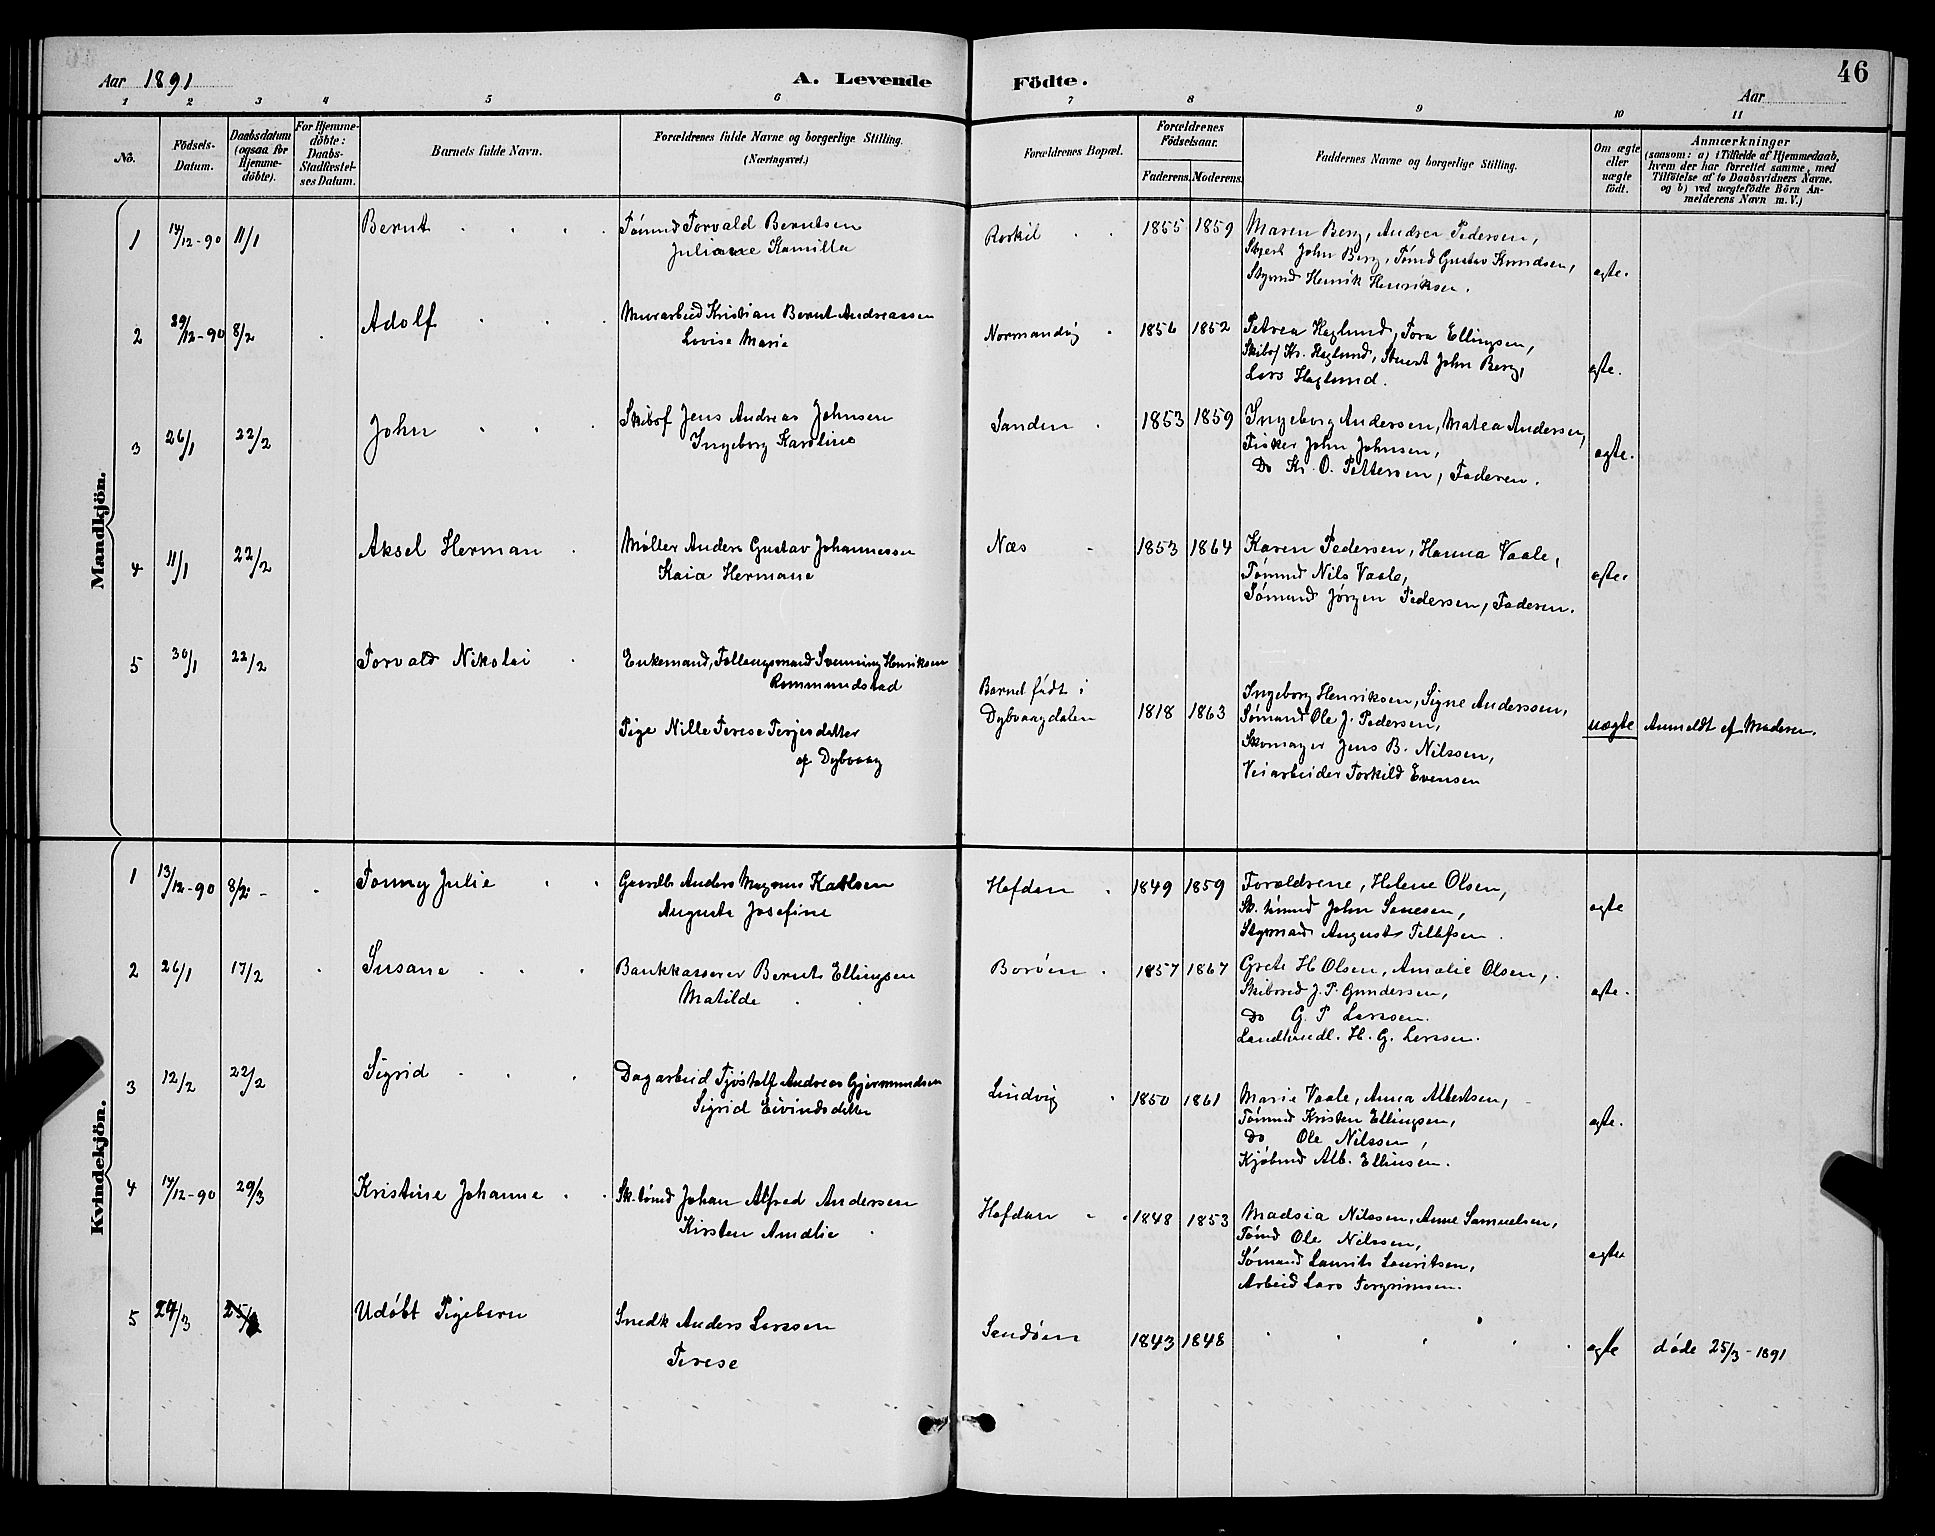 Aar 1891
A. Levende Födte.
46
Aar
1 2 3 4 5 6 7 8 9 10 11
No.
Födsels-Datum.
Daabsdatum (ogsaa for Hjemme-döbte).
For Hjemme-döbte: Daabs-Stadfæstelses Datum.
Barnets fulde Navn.
Forældrenes fulde Navne og borgerlige Stilling. (Næringsvei.)
Forældrenes Bopæl.
Forældrenes Födselsaar.
Faderens. Moderens.
Faddernes Navne og borgerlige Stilling.
Om ægte eller uægte födt.
Anmærkninger
(saasom: a) i Tilfælde af Hjemmedaab, hvem der har forrettet samme, med Tilföielse af to Daabsvidners Navne, og b) ved uægtefödte Börn Anmelderens Navn m. V.)
Mandkjön.
1 17/12-90 11/1 Bernt
Tømmd Torvald Berntsen
Juliane Kamilla
Roskil 1855 1859
Maren Berg, Andrea Pedersen,
John Berg, Tømd Gustav Knudsen,
Henrik Henriksen.
ægte.
2 29/12-90 8/2 Adolf
Murarbeid Kristian Bernt Andreassen
Lovise Marie
Normandvig 1856 1852
Petrea Haglund, Tora Ellingsen,
Skibsf Kr. Haglund, John Berg,
Lars Haglund.
ægte.
3 26/1 22/2 John
Skibsf Jens Andreas Johnsen
Ingeborg Karoline
Sanden 1853 1859
Ingeborg Andersen, Matea Andersen,
Fisker John Johnsen,
Do Kr. O. Pettersen, Faderen.
ægte.
4 11/1 22/2 Aksel Herman
Møller Anders Gustav Johannessen
Kaia Hermane
Næs 1853 1864
Karen Pedersen, Hanna Vaale,
Tømmd Nils Vaale,
Sømand Jørgen Pedersen, Faderen.
ægte.
5 30/1 22/2 Torvald Nikolai
Enkemand, Follaugsmand Svenning Henriksen
Rommundstad
Pige Nille Terese Terjesdatter
af Dybvaag
Barnet født i
Dybvaagdalen 1818 1863
Ingeborg Henriksen, Signe Anderssen,
Sømand Ole J. Pedersen,
Skomager Jens B. Nilssen,
Veiarbeider Torkild Evensen
uægte
Anmeldt af Moderen.
Kvindekjön.
1 13/12-90 8/2 - Tomny Julie
Gaardb Anders Magnus Karlsen
Augusta Josefine
Hofdan 1849 1859
Forældrene, Helene Olsen,
Sk. tømmd John
August Tellefsen
ægte
2 26/1 17/2 Susane
Bankkasserer Bernt Ellingsen
Matilde
Borøen 1857 1867
Grete H Olsen, Amalie Olsen,
Skibsred J. P. Gundersen,
Do G. P Larssen.
Landhandl. H. G. Larssen.
ægte.
3 12/2 22/2 Sigrid
Dagarbeid Tjøstolf Andreas Gjermundsen
Sigrid Eivindsdatter
Lindvig 1850 1861
Marie Vaale, Anna Albertsen,
Tømmd Kristen Ellingsen,
Do Ole Nilssen,
Kjøbmd Alb. Ellinsen.
ægte.
4 17/12-90 29/3 Kristine Johanne
Sk. tømd Johan Alfred Andersen
Kirsten Amalie
Hofdan 1848 1853
Madsia Nilssen, Anne Samuelsen,
Tømd Ole Nilssen,
Sømand Laurits Lauritsen,
Arbeid Lars Torgrimsen.
ægte
5 24/3 25/3 Udøbt Pigebarn
Snedk Anders Larssen
Terese
Sandøen 1843 1848
ægte
døde 25/3-1891